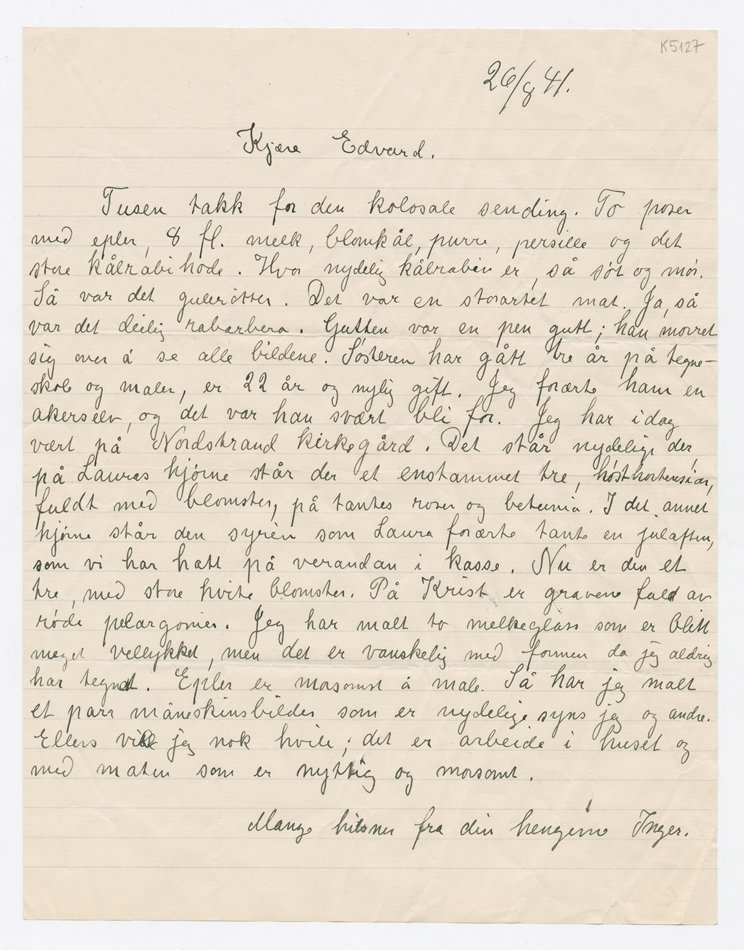 K5127
26/8 41.
Kjære Edvard.
Tusen takk for den kolosale sending. To poser
med epler, 8 fl. melk, blomkål, purre, persille og det
store kålrabihode. Hvor nydelig kålrabien er, så søt og mør.
Så var det gulerøtter. Det var en storartet mat. Ja, så
var det deilig rabarbera. Gutten var en pen gutt; han morret
sig over å se alle bildene. Søsteren har gått tre år på tegne-
skole og maler, er 22 år og nylig gift. Jeg forærte ham en
akerselv, og det var han svært bli for. Jeg har idag
vært på Nordstrand kirkegård. Det står nydelig der
på Lauras hjørne står der et enstammet tre, høsthortensiaer,
fuldt med blomster, på tantes roser og betunia. I det annet
hjørne står den syrèn som Laura forærte tante en julaften,
som vi har hatt på verandan i kasse. Nu er den et
tre, med store hvite blomster. På Krist er gravene full av
røde pelargonier. Jeg har malt to melkeglass som er blitt
meget vellykket, men det er vanskelig med formen da jeg aldrig
har tegnet. Epler er morsomst å male. Så har jeg malt
et parr måneskinsbilder som er nydelige syns jeg og andre.
Ellers vill jeg nok hvile; det er arbeide i huset og
med maten som er nyttig og morsomt.
Mange hilsner fra din hengivne Inger.